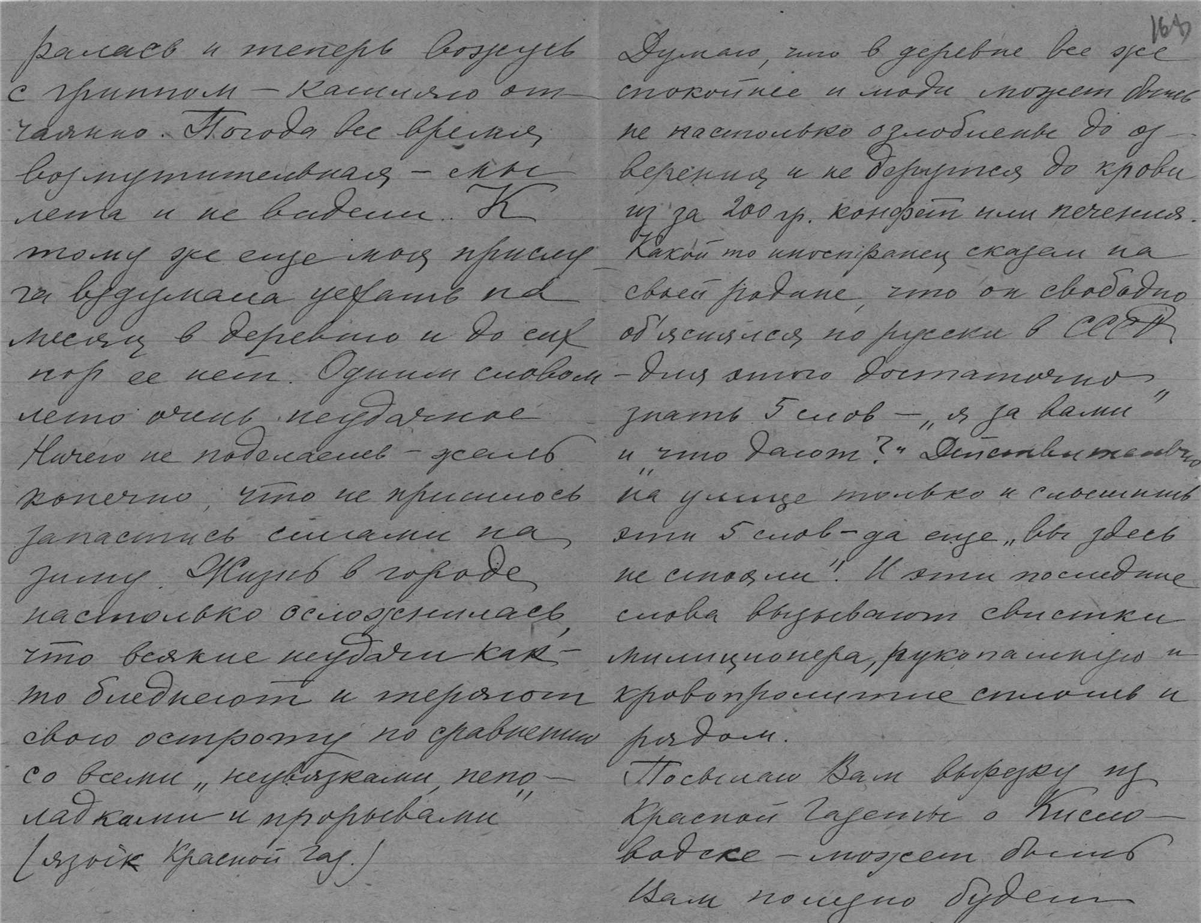 ралась и теперь вожусь
с гриппом – кашляю от–
чаянно. Погода все время
возмутительная – мы
лета и не видели. К
тому же еще моя прислу–
га вздумала уехать на
месяц в деревню и до сих
пор ее нет. Одним словом
лето очень неудачное
Ничего не поделаешь – жаль
конечно, что не пришлось
запастись силами на
зиму. Жизнь в городе
настолько осложнилась,
что всякие неудачи как–
то бледнеют и теряют
свою остроту по сравнению
со всеми „неувязками, непо–
ладками и прорывами"
(язык Красной Газ.)
164
Думаю, что в деревне все же
спокойнее и люди может быть
не настолько озлоблены до оз–
верения и не дерутся до крови
из за 200 гр. конфет или печения.
Какой то иностранец сказал на
своей родине, что он свободно
об'яснялся по русски в СССР
– для этого достаточно
знать 5 слов – „я за вами"
и „что дают?" Действительно
на улице только и слышишь
эти 5 слов – да еще „вы здесь
не стояли". И эти последние
слова вызывают свистки
милиционера, рукопашную и
кровопролитие сплошь и
рядом.
Посылаю Вам вырезку из
Красной Газеты о Кисло–
водске – может быть
Вам полезно будет